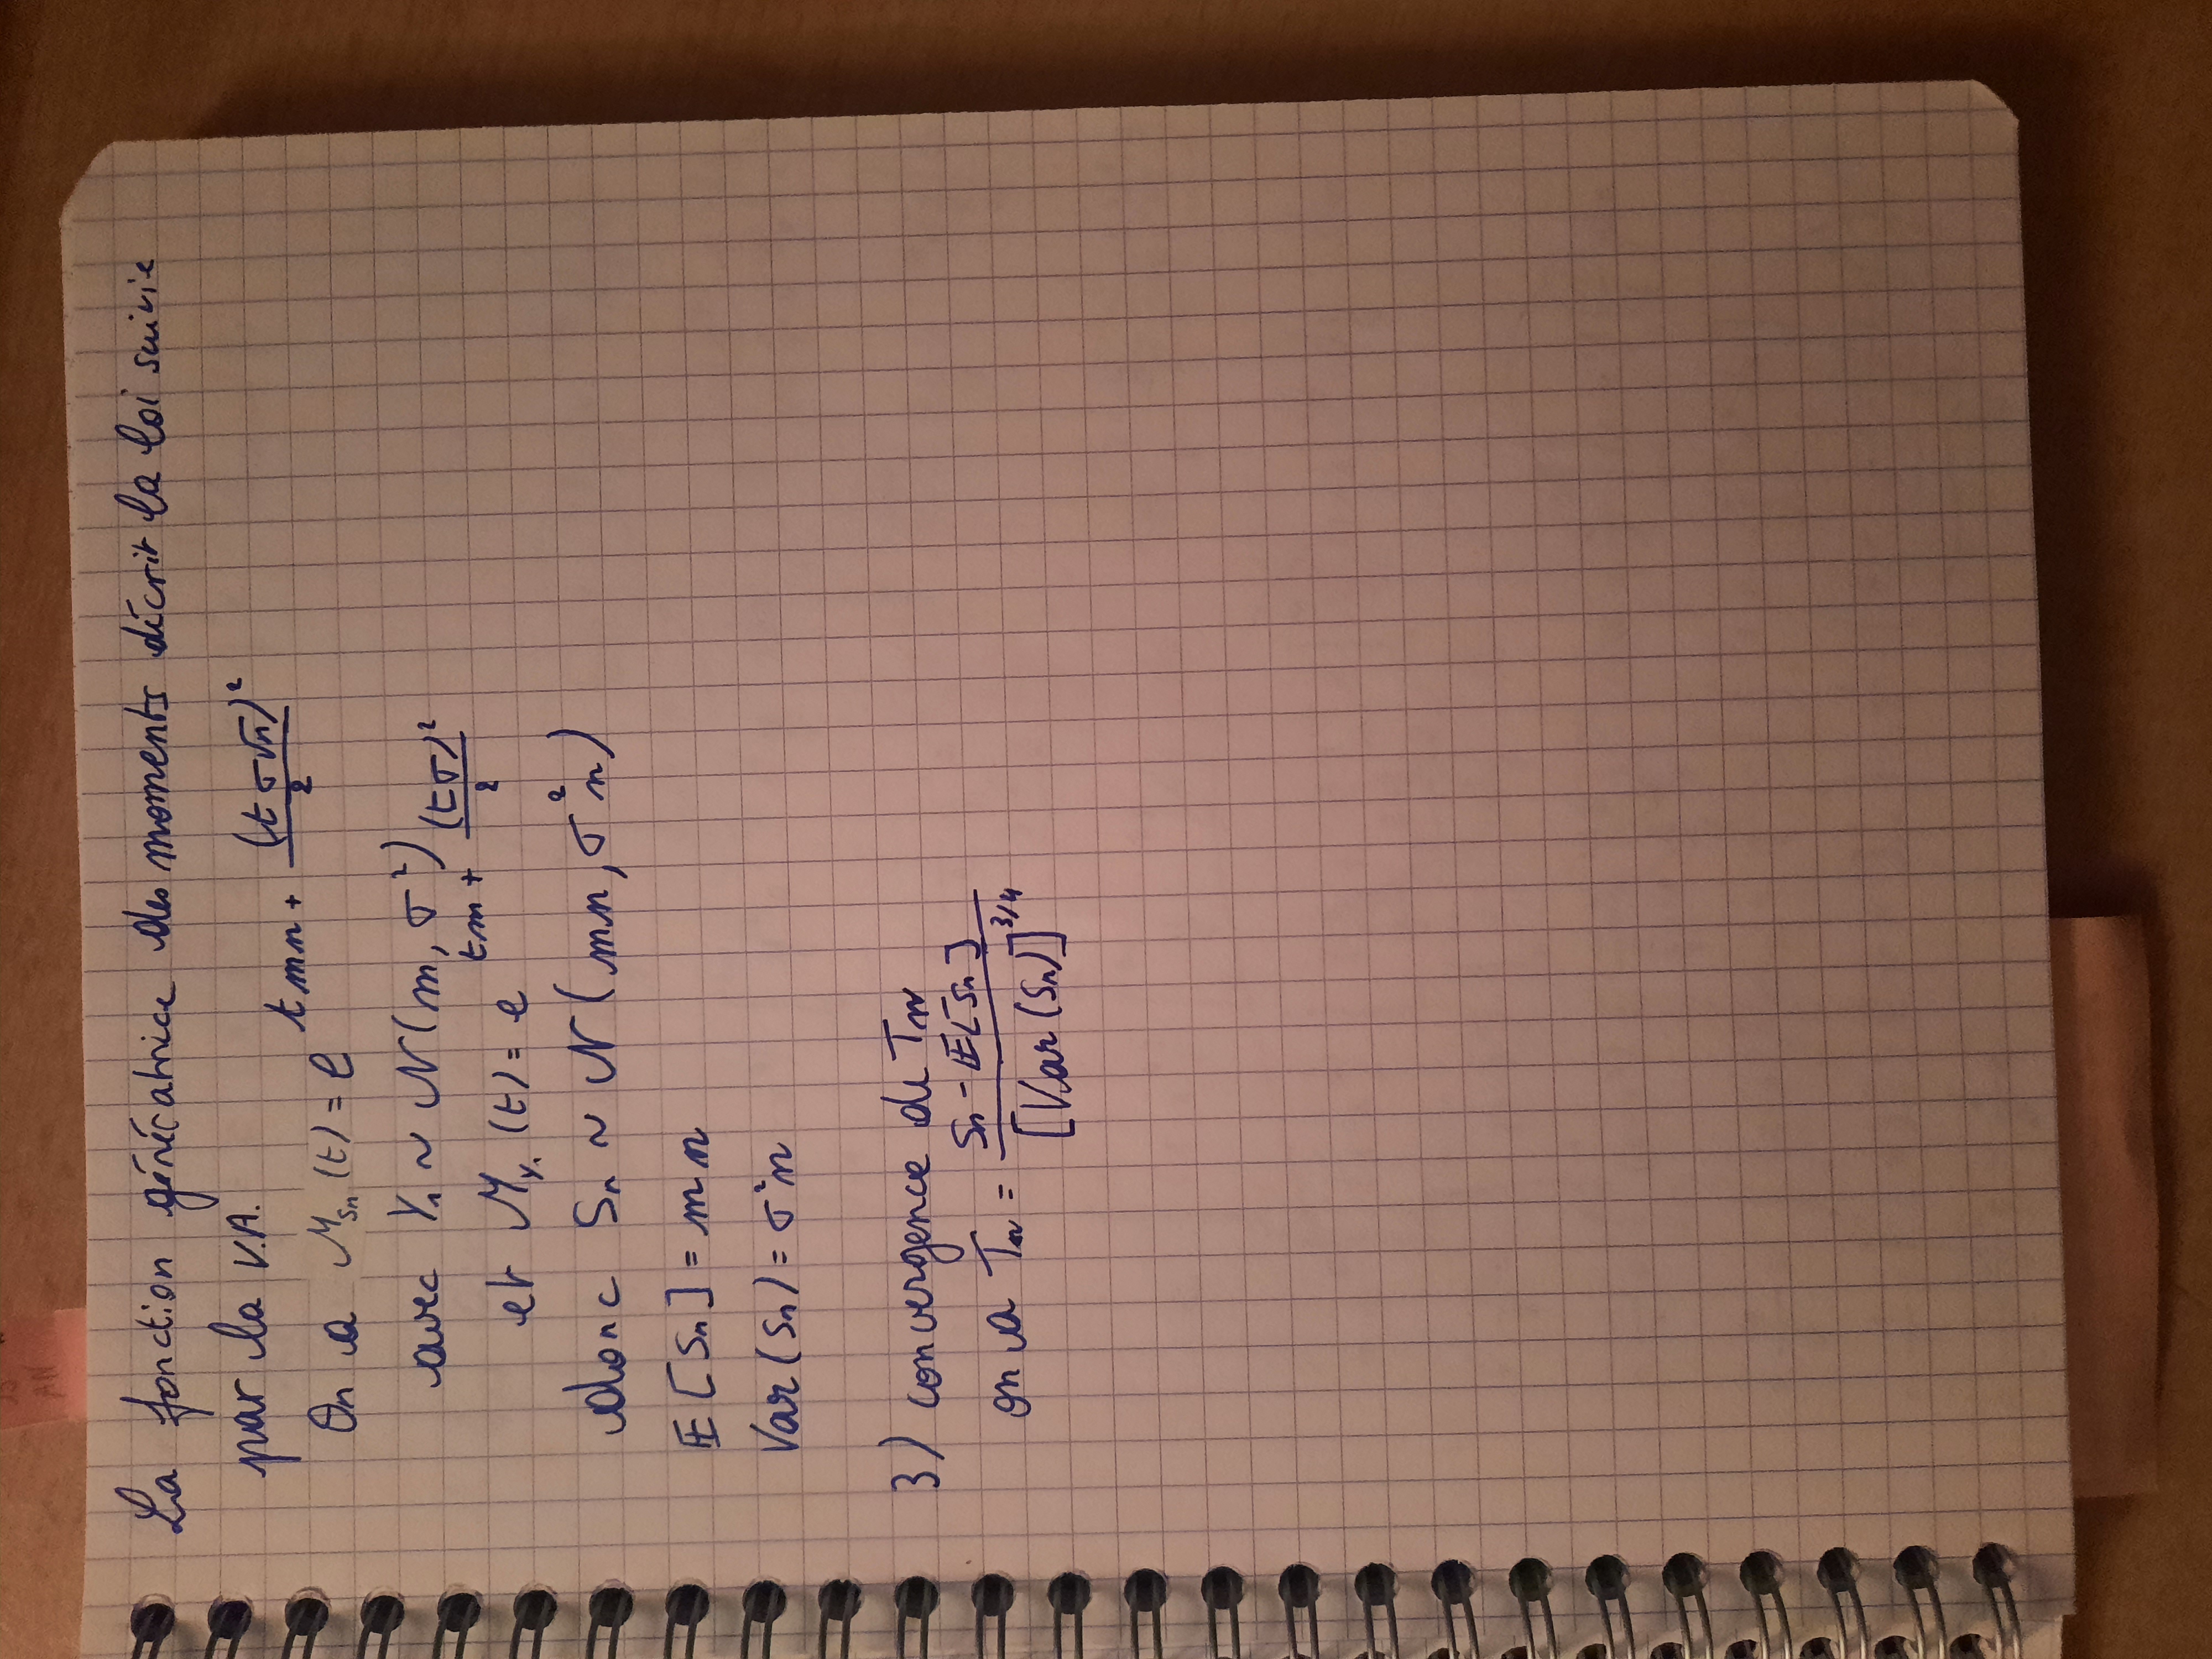 La fonction génératrice des moments décrit la loi suivie
par la V.A.
On a M_{Sn}(t) = e^{tmn + (tσ√n)²/2}
avec Y₁ ~ N(m, σ²)
et M_{Y₁}(t) = e^{tm + (tσ)²/2}
donc Sn ~ N(mn, σ²n)
E[Sn] = mn
Var(Sn) = σ²n
3) convergence de Tn
on a Tn = (Sn - E[Sn]) / [Var(Sn)]^{3/4}